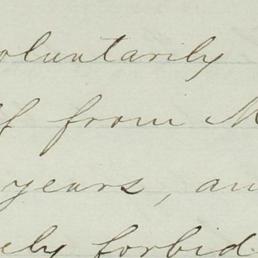 voluntarily
from M
years, an
ely forbid